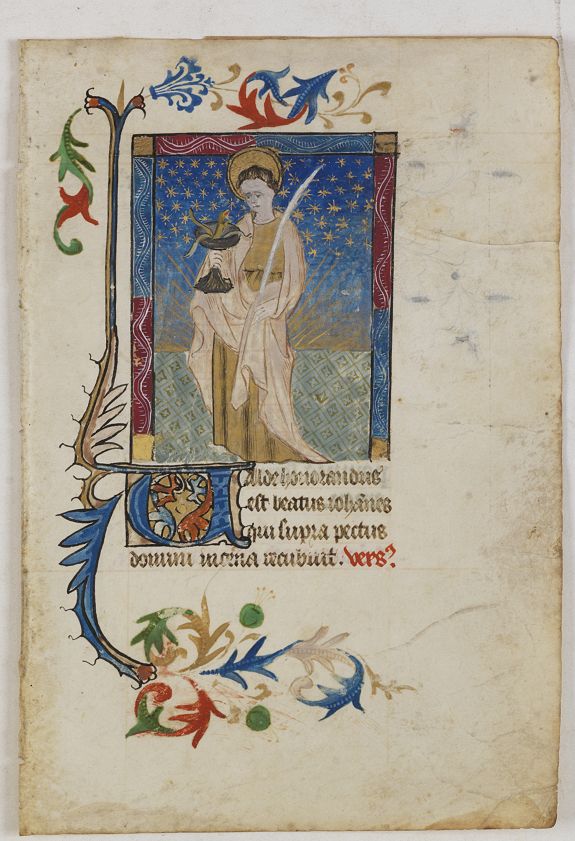 Valde honorandus
est beatus iohānes
qui supra pectus
domini in cena recubuit. vers?